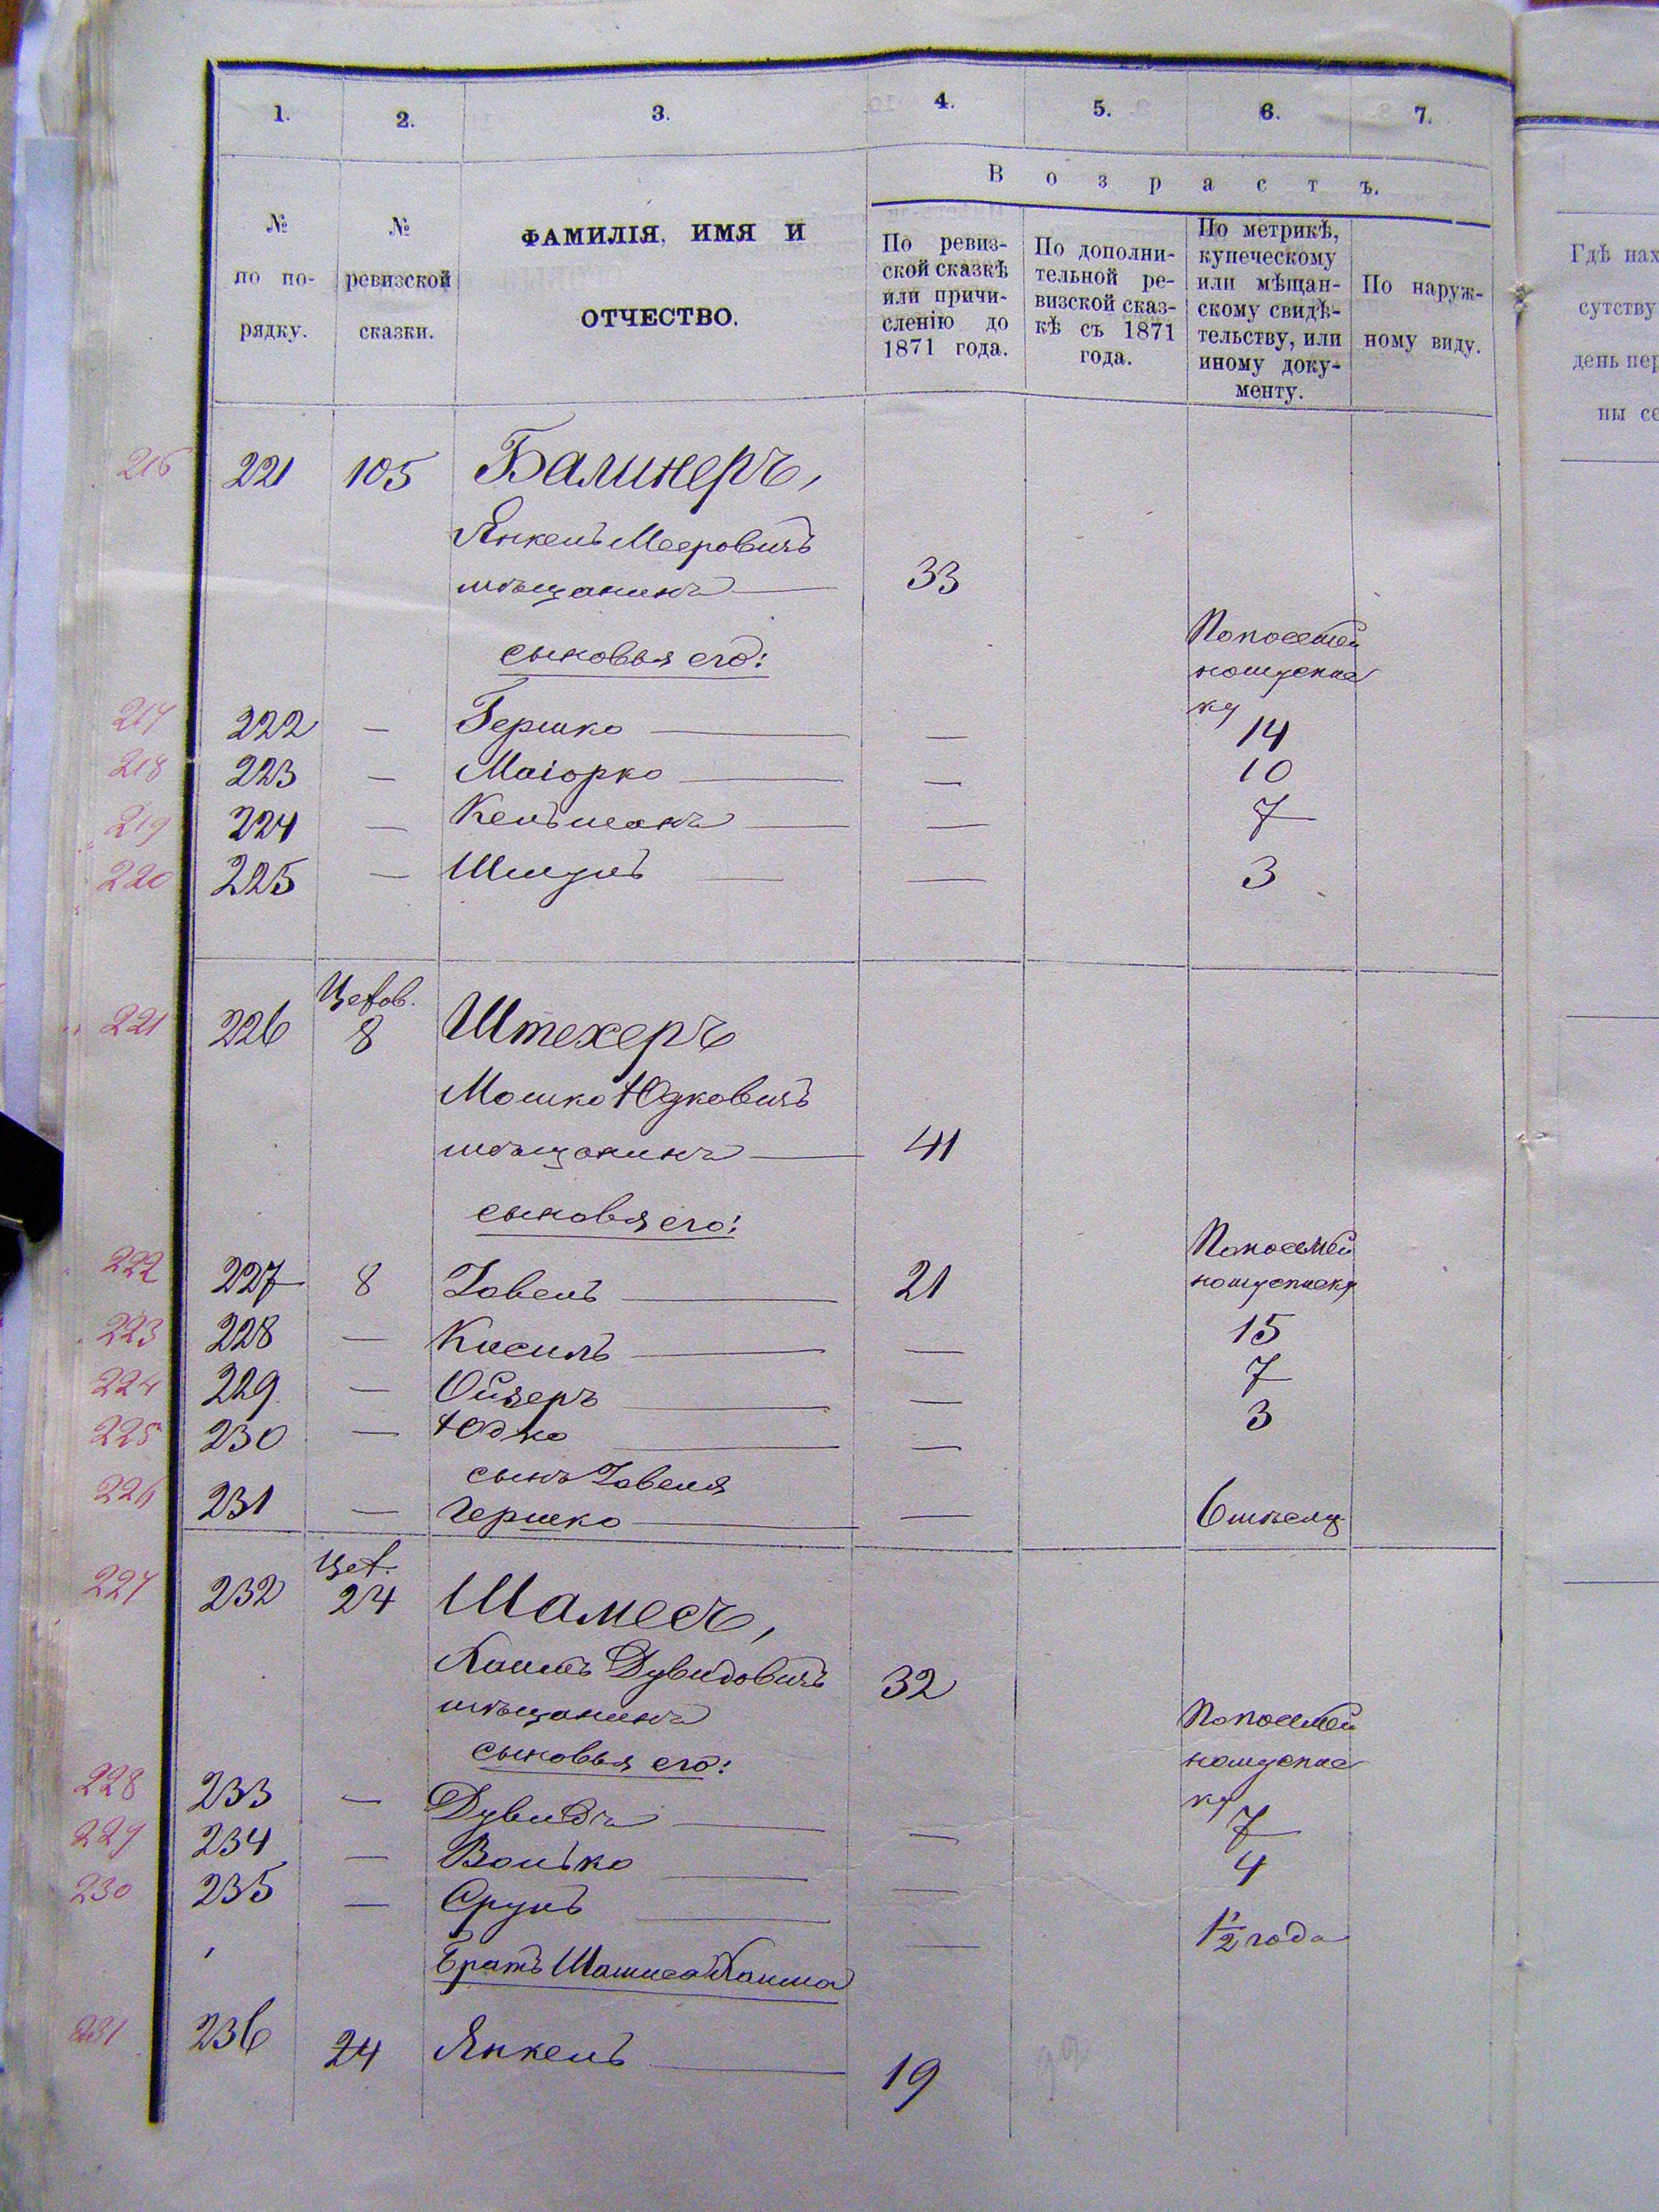 1. 2. 3. 4. 5. 6. 7.
Возрастъ.
№ по порядку.
№ ревизской сказки.
ФАМИЛІЯ, ИМЯ И
ОТЧЕСТВО.
По ревиз-
ской сказкѣ
или причи-
сленію до
1871 года.
По дополни-
тельной ре-
визской сказ-
кѣ съ 1871
года.
По метрикѣ,
купеческому
или мѣщан-
скому свидѣ-
тельству, или
иному доку-
менту.
По наруж-
ному виду.
Гдѣ нах
сутству
день пер
ны се
216 221 105 Балинеръ,
Янкель Мееровичъ
мѣщанинъ 33
сыновья его: По посемей
ному спис
ку
217 222 — Гершко — 14
218 223 — Маіорко — 10
219 224 — Кельманъ — 7
220 225 — Шмуль — 3
221 226 8 Штехеръ
Мошко Юдковичъ
мѣщанинъ 41
сыновья его: По посемей
ному списку
222 227 8 Зовель 21
223 228 — Кисиль — 15
224 229 — Ойзеръ — 7
225 230 — Юдко — 3
сынъ Зовеля
226 231 — Гершко — 6 мѣсяц.
227 232 24 Шамесъ,
Хаимъ Дувидовичъ 32
мѣщанинъ По посемей
сыновья его: ному спис
ку
228 233 — Дувидъ — 7
229 234 — Волько — 4
230 235 — Сруль — 1½ года
Братъ Шамиса Хаима
231 236 24 Янкель 19